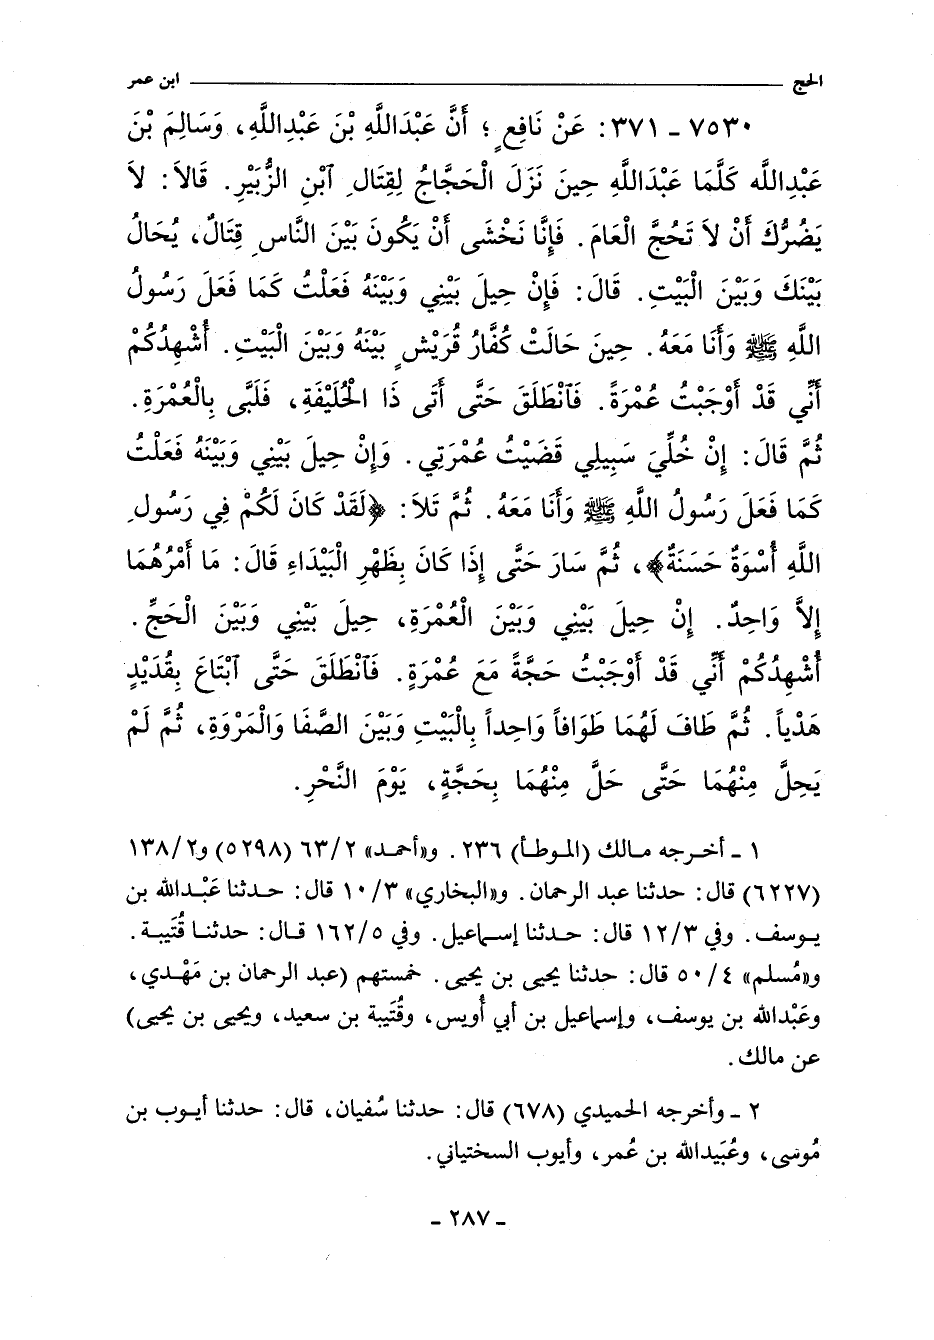 الحج ابن عمر
٧٥٣٠ - ٣٧١: عَنْ نَافِعٍ ؛ أَنَّ عَبْدَاللَّهِ بْنَ عَبْدِاللَّهِ، وَسَالِمَ بْنَ
عَبْدِاللَّه كَلَّمَا عَبْدَاللَّهِ حِينَ نَزَلَ الْحَجَّاجُ لِقِتَالِ ٱبْنِ الزُّبَيْرِ. قَالاَ: لاَ
يَضُرُّكَ أَنْ لاَ تَحُجَّ الْعَامَ. فَإِنَّا نَخْشَى أَنْ يَكُونَ بَيْنَ النَّاسِ قِتَالٌ، يُحَالُ
بَيْنَكَ وَبَيْنَ الْبَيْتِ. قَالَ: فَإِنْ حِيلَ بَيْنِي وَبَيْنَهُ فَعَلْتُ كَمَا فَعَلَ رَسُولُ
اللَّهِ ﷺ وَأَنَا مَعَهُ. حِينَ حَالَتْ كُفَّارُ قُرَيْشٍ بَيْنَهُ وَبَيْنَ الْبَيْتِ. أُشْهِدُكُمْ
أَنِّي قَدْ أَوْجَبْتُ عُمْرَةً. فَٱنْطَلَقَ حَتَّى أَتَى ذَا الْحُلَيْفَةِ، فَلَبَّى بِالْعُمْرَةِ.
ثُمَّ قَالَ: إِنْ خُلِّيَ سَبِيلِي قَضَيْتُ عُمْرَتِي. وَإِنْ حِيلَ بَيْنِي وَبَيْنَهُ فَعَلْتُ
كَمَا فَعَلَ رَسُولُ اللَّهِ ﷺ وَأَنَا مَعَهُ. ثُمَّ تَلاَ: ﴿لَقَدْ كَانَ لَكُمْ فِي رَسُولِ
اللَّهِ أُسْوَةٌ حَسَنَةٌ﴾، ثُمَّ سَارَ حَتَّى إِذَا كَانَ بِظَهْرِ الْبَيْدَاءِ قَالَ: مَا أَمْرُهُمَا
إِلاَّ وَاحِدٌ. إِنْ حِيلَ بَيْنِي وَبَيْنَ الْعُمْرَةِ، حِيلَ بَيْنِي وَبَيْنَ الْحَجِّ.
أُشْهِدُكُمْ أَنِّي قَدْ أَوْجَبْتُ حَجَّةً مَعَ عُمْرَةٍ. فَٱنْطَلَقَ حَتَّى ٱبْتَاعَ بِقُدَيْدٍ
هَدْياً. ثُمَّ طَافَ لَهُمَا طَوَافاً وَاحِداً بِالْبَيْتِ وَبَيْنَ الصَّفَا وَالْمَرْوَةِ، ثُمَّ لَمْ
يَحِلَّ مِنْهُمَا حَتَّى حَلَّ مِنْهُمَا بِحَجَّةٍ، يَوْمَ النَّحْرِ.
١ - أخرجه مالك (الموطأ) ٢٣٦. و«أحمد» ٦٣/٢ (٥٢٩٨) و١٣٨/٢
(٦٢٢٧) قال: حدثنا عبد الرحمان. و«البخاري» ١٠/٣ قال: حدثنا عَبْدالله بن
يوسف. وفي ١٢/٣ قال: حدثنا إسماعيل. وفي ١٦٢/٥ قال: حدثنا قُتَيبة.
و«مُسلم» ٥٠/٤ قال: حدثنا يحيى بن يحيى. خمستهم (عبد الرحمان بن مَهْدي،
وعَبْدالله بن يوسف، وإسماعيل بن أبي أُويس، وقُتَيبة بن سعيد، ويحيى بن يحيى)
عن مالك.
٢ - وأخرجه الحميدي (٦٧٨) قال: حدثنا سُفيان، قال: حدثنا أيوب بن
مُوسى، وعُبَيدالله بن عُمر، وأيوب السختياني.
- ٢٨٧ -